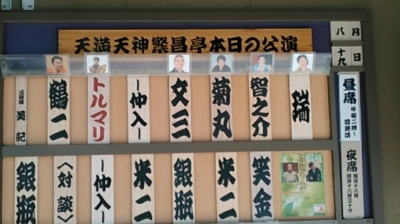 天満天神繁昌亭本日の公演
八月
十九日
昼席
夜席
瑞
智之介
菊丸
文三
仲入
トルマリ
鶴二
三味線
美記
笑金
米二
銀瓶
米二
仲入
〈対談〉
銀瓶